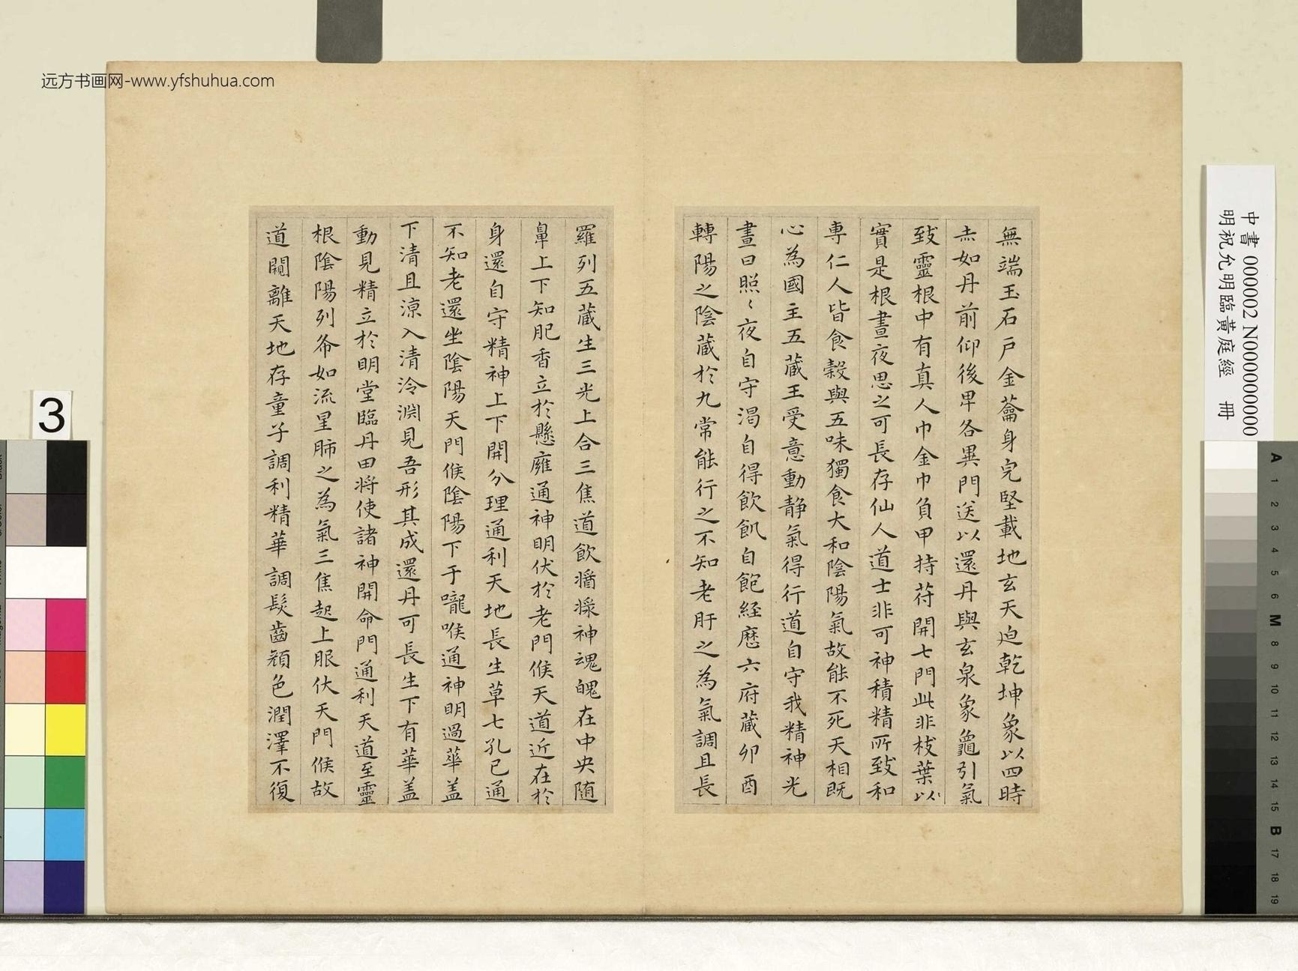 远方书画网-www.yfshuhua.com
無端玉石戶金籥身完堅載地玄天迫乾坤象以四時
赤如丹前仰後卑各異門送以還丹與玄泉象龜引氣
致靈根中有真人巾金巾負甲持苻開七門此非枝葉以
實是根晝夜思之可長存仙人道士非可神積精所致和
專仁人皆食穀與五味獨食大和陰陽氣故能不死天相既
心為國主五藏王受意動靜氣得行道自守我精神光
晝日照〻夜自守渴自得飲飢自飽經歷六府藏卯酉
轉陽之陰藏於九常能行之不知老肝之為氣調且長
羅列五藏生三光上合三焦道飲醬漿神魂魄在中央随
鼻上下知肥香立於懸癰通神明伏於老門候天道近在於
身還自守精神上下開分理通利天地長生草七孔已通
不知老還坐陰陽天門候陰陽下于嚨喉通神明過華盖
下清且涼入清泠淵見吾形其成還丹可長生下有華盖
動見精立於明堂臨丹田將使諸神開命門通利天道至靈
根陰陽列布如流星肺之為氣三焦起上服伏天門候故
道闚離天地存童子調利精華調髮齒顏色潤澤不復
中書 000002 N000000000
明祝允明臨黃庭經 冊
3
A 1 2 3 4 5 6 M 8 9 10 11 12 13 14 15 B 17 18 19